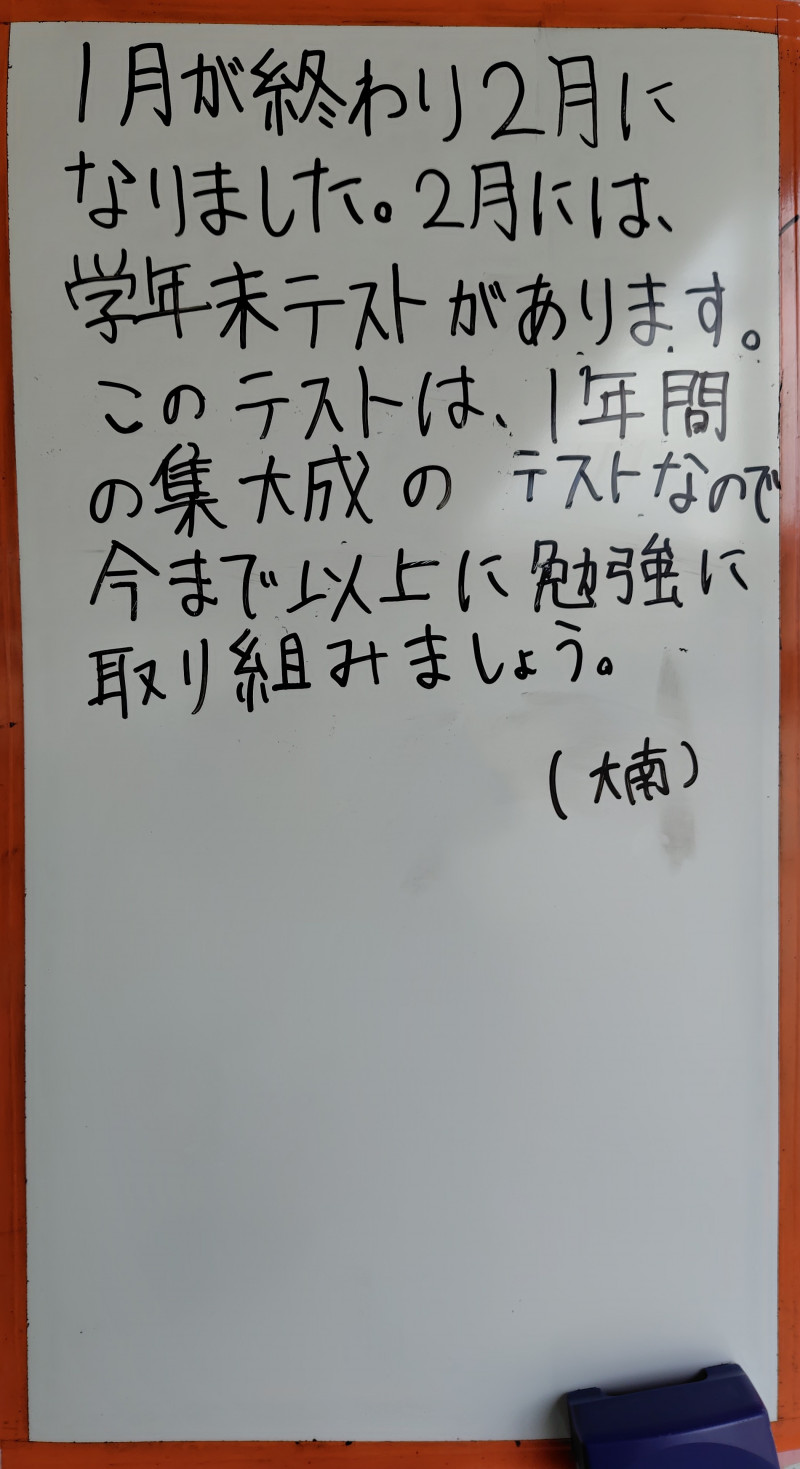 1月が終わり2月に
なりました。2月には、
学年末テストがあります。
このテストは、1年間
の集大成のテストなので
今まで以上に勉強に
取り組みましょう。
(大南)